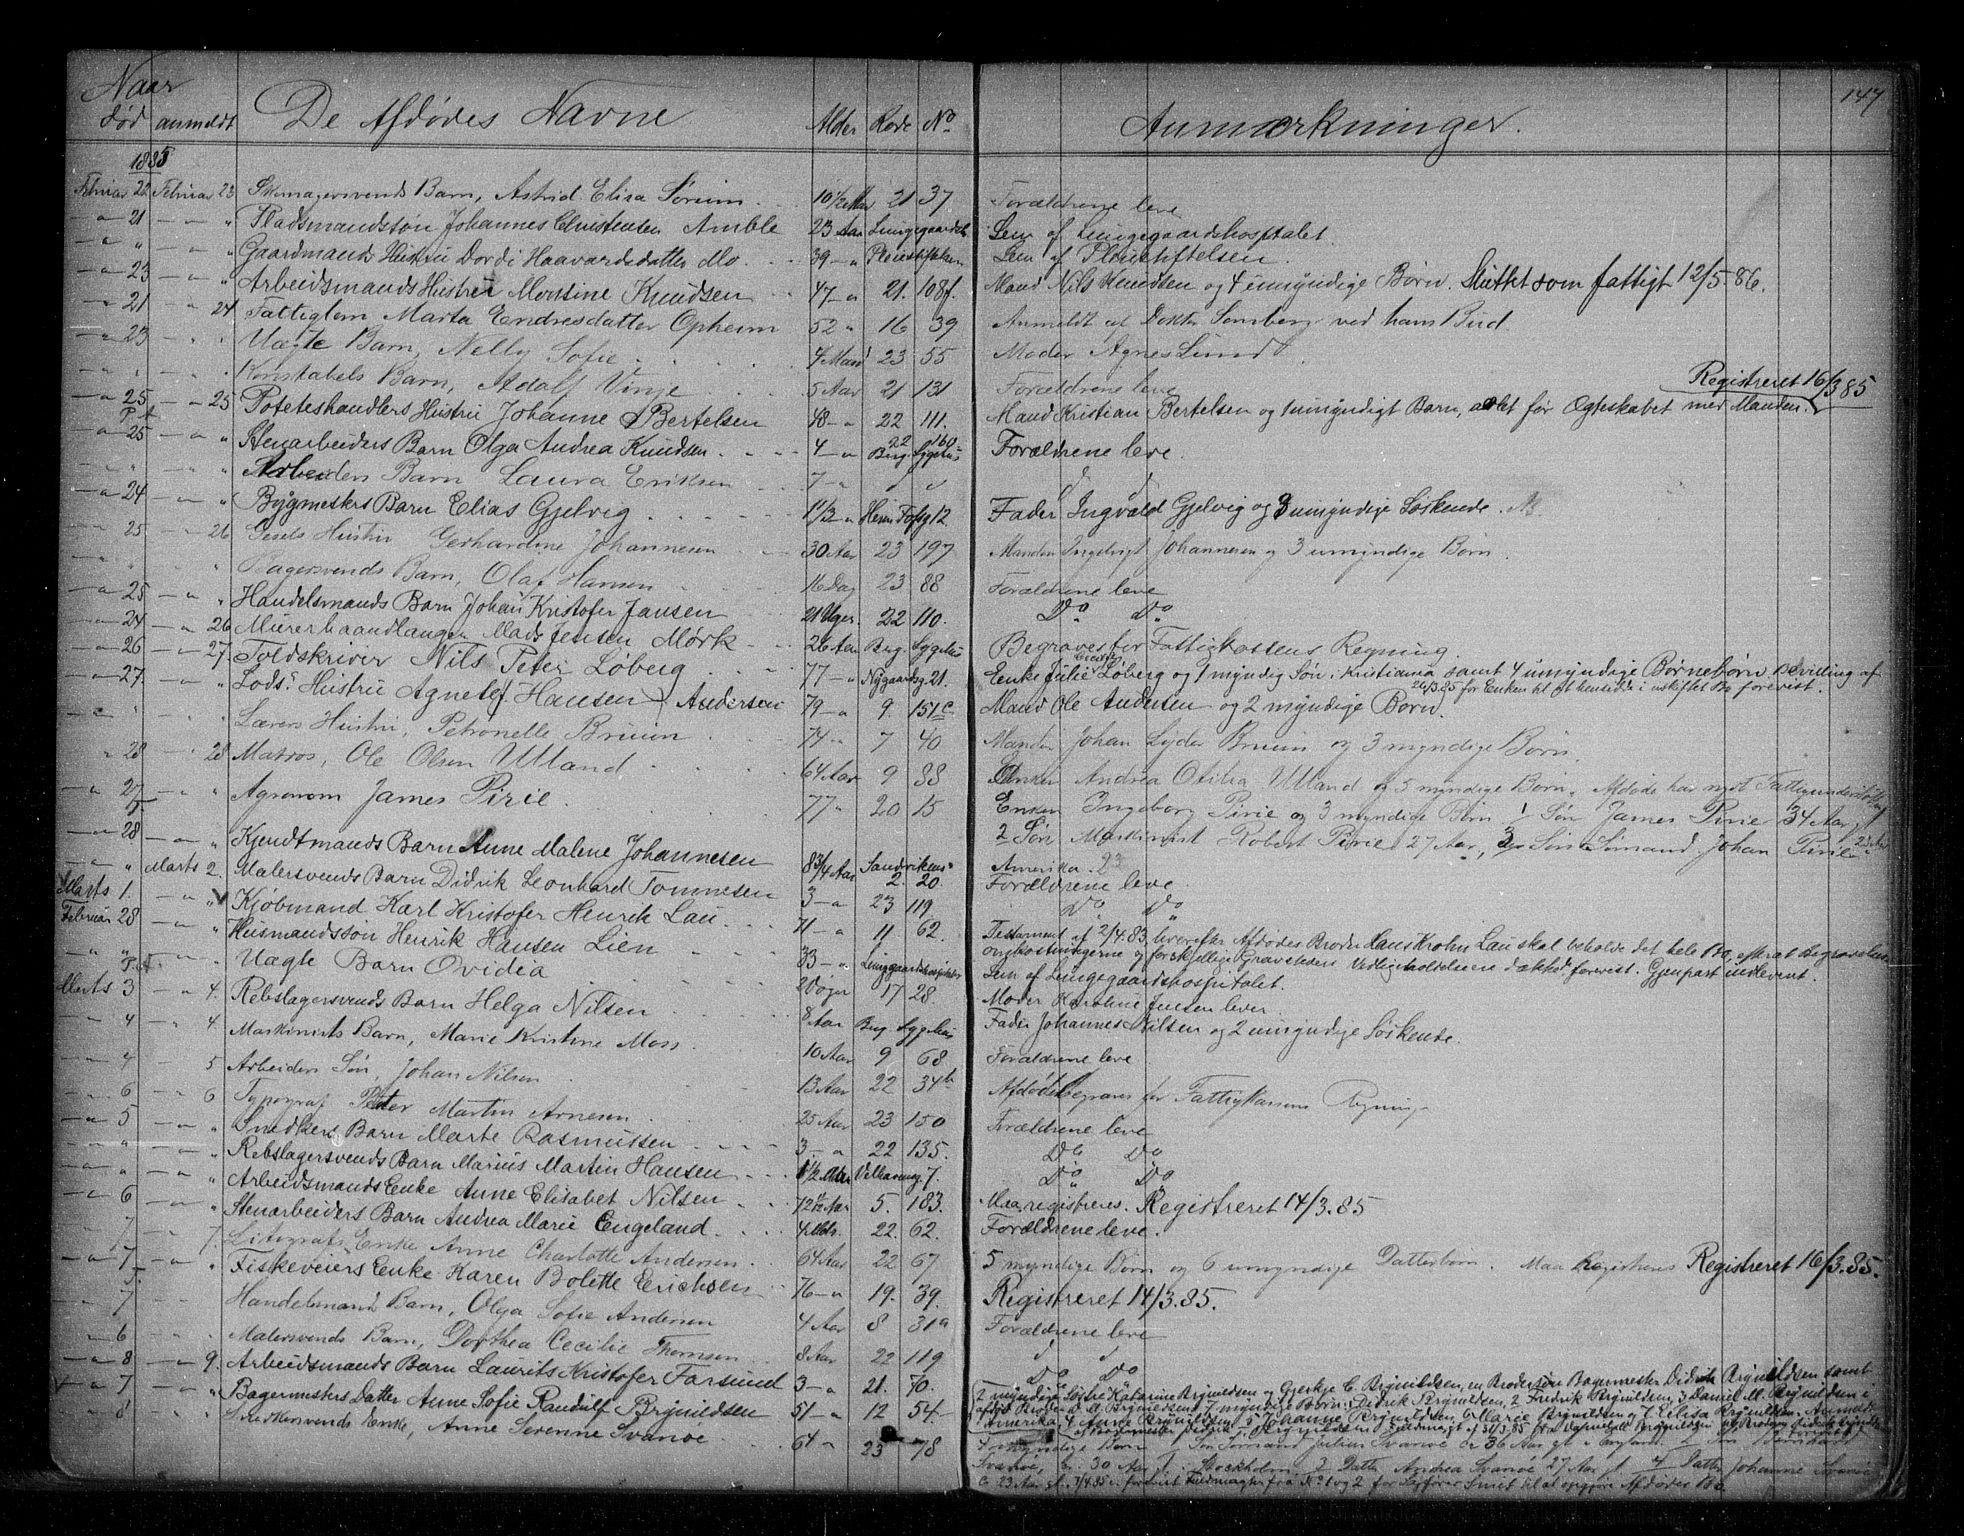 147
Naar
død anmeldt De Afdødes Navne Alder Rode No Anmærkninger.
1885
Februar 22 Februar 23 Skomagersvends Barn, Astrid Elisa Sørum 10 1/2 Mdr 21 37 Forældrene leve
" 21 " " Pladsmandssøn Johannes Christensen Amble 23 Aar Lungegaardsh. Lem af Lungegaardshospitalet.
" " " " Gaardmands Hustru Dordi Haavardsdatter Mo. 39 " Pleiestiftelsen Lem af Pleiestiftelsen.
" 23 " " Arbeidsmands Hustru Montine Knudsen 47 " 21. 108f. Mand Nils Knudsen og 4 umyndige Børn. Sluttet som fattigt 12/5.86.
" 21 " 24 Fattiglem Marta Endresdatter Opheim 52 " 16 39 Anmeldt af Doktor Sømberg ved hans Bud
" 23 " " Uægte Barn, Nelly Sofie 4 Maan 23 55 Moder Agnes Lund
" " " " Konstabels Barn, Adolf Vinje 5 Aar 21 131 Forældrene leve
Registreret 16/3 85
" 25 " 25 Poteteshandlers Hustru Johanne Bertelsen 48 " 22 111. Mand Kristian Bertelsen og 1 umyndigt Barn, avlet før Ægteskabet med Manden.
" 25 " " Stenarbeiders Barn Olga Andrea Knudsen 4 " 22 160 Berg. Sygehus Forældrene leve.
" " " " Arbeiders Barn Laura Eriksen 7 " " " d d
" 24 " " Bygmesters Barn Elias Gjelvig 1 1/3 " Herm Fosg 12 Fader Ingvald Gjelvig og 3 umyndige Søskende.
25 26 Gesels Hustru Gerhardine Johannesen 30 Aar 23 197 Manden Ingebrigt Johannesen og 3 umyndige Børn
" " Bagersvends Barn, Olaf Hansen 16 Dag 23 88 Forældrene leve
" 25 " " Handelsmands Barn Johan Kristofer Jansen 21 Uger. 22 110. Do Do
" 24 " 26 Murerhaandlanger Mads Jensen Mørk 26 Aar Berg. Sygehus Begraves for Fattigkassens Regning.
" 26 " 27. Toldskriver Nils Peter Løberg 77 " Nygaardsg 21. Enke Julie Løberg og 1 myndig Søn, Kristiania samt 4 umyndige Børnebørn Bevilling af
26/3.85 for Enken til at hensidde i uskiftet Bo forevist.
" 27. " " Lods. Hustru Agnete J. Hansen, Andersen 79 " 9. 151c Mand Ole Andersen og 2 myndige Børn.
" " " Lærers Hustru, Petronelle Bruun 74 " 7 40 Manden Johan Lyder Bruun og 3 myndige Børn
" 28 28 Matros, Ole Olsen Ulland 64 Aar 9 88 Enken Andrea Otilia Ulland og 5 myndige Børn. Afdøde har nydt Fattigunderstøttelse
" 27 " " Agronom James Pirie. 77 " 20 15 Enken Ingeborg Pirie og 3 myndige Børn 1/ Søn James Pirie 34 Aar,
2 Søn Maskinist Robert Pirie 27 Aar, 3/ Søn Sømand Johan Pirie
Amerika. 23
" 28 " " Kjendtmands Barn Anne Malene Johannesen 8 3/4 Aar Sandvikens 2. 20. Forældrene leve.
" " Marts 2. Malersvends Barn Didrik Leonhard Tommesen 3 " 23 119 Do Do
Marts 1. " " Kjøbmand Karl Kristofer Henrik Lau 71 " 11 62. Testament af 2/4.83, hvorefter Afdødes Broder Hans Krohn Lau skal beholde det hele Bo, efterat Begravelses
omkostningerne og forskjellige Gravsteders Vedligeholdelse er dækkede forevist. Gjenpart indleveret.
Februar 28 " " Husmandssøn Henrik Hansen Lien 33 " Lungegaardshospitalet Lem af Lungegaardshospitalet.
" " " " Uægte Barn Ovidia 2 Døgn 17 28. Moder Karoline Jensen lever
Marts 3 " 4. Rebslagersvends Barn Helga Nilsen 8 Aar Berg. Sygehus Fader Johannes Nilsen og 2 umyndige Søskende.
" 4 " 4 Maskinists Barn, Marie Kristine Moss 10 Aar 9 68 Forældrene leve
" 4 5 Arbeiders Søn, Johan Nilsen 13 Aar 22 34b Afdøde begraves for Fattigkassens Regning
" 6 " 6 Typograf Peter Martin Arnesen 25 Aar 23 150 Forældrene leve
" 5 " " Snedkers Barn Marte Rasmussen 3 " 22 135. Do Do
" " " " Rebslagersvends Barn Marius Martin Hansen 1 1/2 Aar Villaveien 7. Do Do
" " " " Arbeidsmands Enke Anne Elisabet Nilsen 72 1/2 Aar 5. 183. Maa registreres. Registreret 14/3.85
" 6 " " Stenarbeiders Barn Andrea Marie Engeland. 4 Mdr. 22. 62. Forældrene leve.
7 7. Litografs Enke Anne Charlotte Andersen 64 Aar 22 67 5 myndige Børn og 6 umyndige Datterbørn. Maa Registreres Registreret 16/3.85.
" 7 " " Fiskeveiers Enke Karen Bolette Erichsen 76 " 19. 39. Registreret 14/3.85.
7 Handelsmand Barn, Olga Sofie Andersen 4 Aar 8 31a Forældrene leve
" 6 Malersvends Barn, Dorthea Cecilie Thomsen 8 Aar 22 119 d d
" 8 " 9. Arbeidsmands Barn Laurits Kristofer Farsund 3 " 21. 70. Do Do
" 7 " " Bagermesters Datter Anne Sofie Randulf Brynildsen 51 " 12 54 2 myndige Søstre Katarine Brynildsen og Gjertje C. Brynildsen, en Brodersøn Bagermester Didrik Brynildsen samt
afdøde Broder D. A. Brynildsens 7 myndige Børn: 1 Didrik Brynildsen, 2 Fredrik Brynildsen, 3 Daniel M. Brynildsen i
Amerika, 4 Anne Brynildsen, 5 Johanne Brynildsen, 6 Marie Brynildsen og 7. Elisa Brynildsen. Anmeldt
af Bagermester Didrik Brynildsen
8 " Snedkersvends Enke, Anne Serenne Svanøe 64 " 23 78 4 myndige Børn 1 Søn Sømand Julius Svanøe er 36 Aar gl i England. 2 Søn Bernhard
Svanøe, 30 Aar gl. Stockholm. 3 Datter Andrea Svanøe 27 Aar gl 4 Datter Johanne Svanøe
23 Aar gl. 7/4.85 forevist Fuldmagter fra No 1 og 2 for Sagfører Smit til at opgjøre Afdødes Bo.